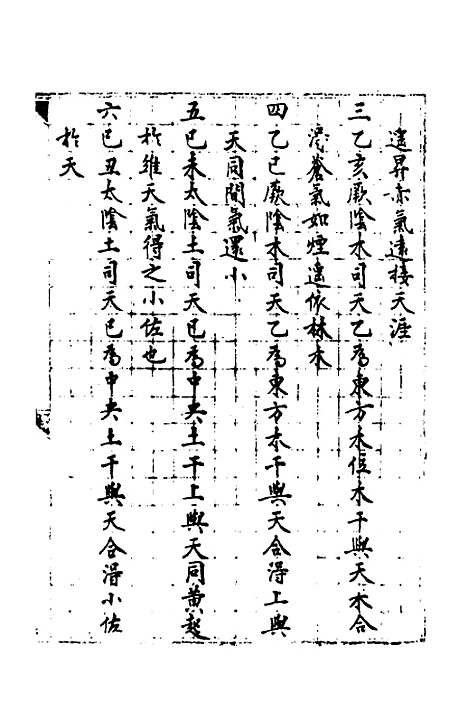 遥昇赤氣遠接天涯
三乙亥厥陰木司天乙為東方木位木干與天木合
浮蒼氣如煙遥依林木
四乙巳厥陰木司天乙為東方木干與天合得上與
天同間氣還小
五巳未太陰土司天巳為中央土干上與天同黄起
於維天氣得之小佐也
六巳丑太陰土司天巳為中央土干與天合得小佐
於天